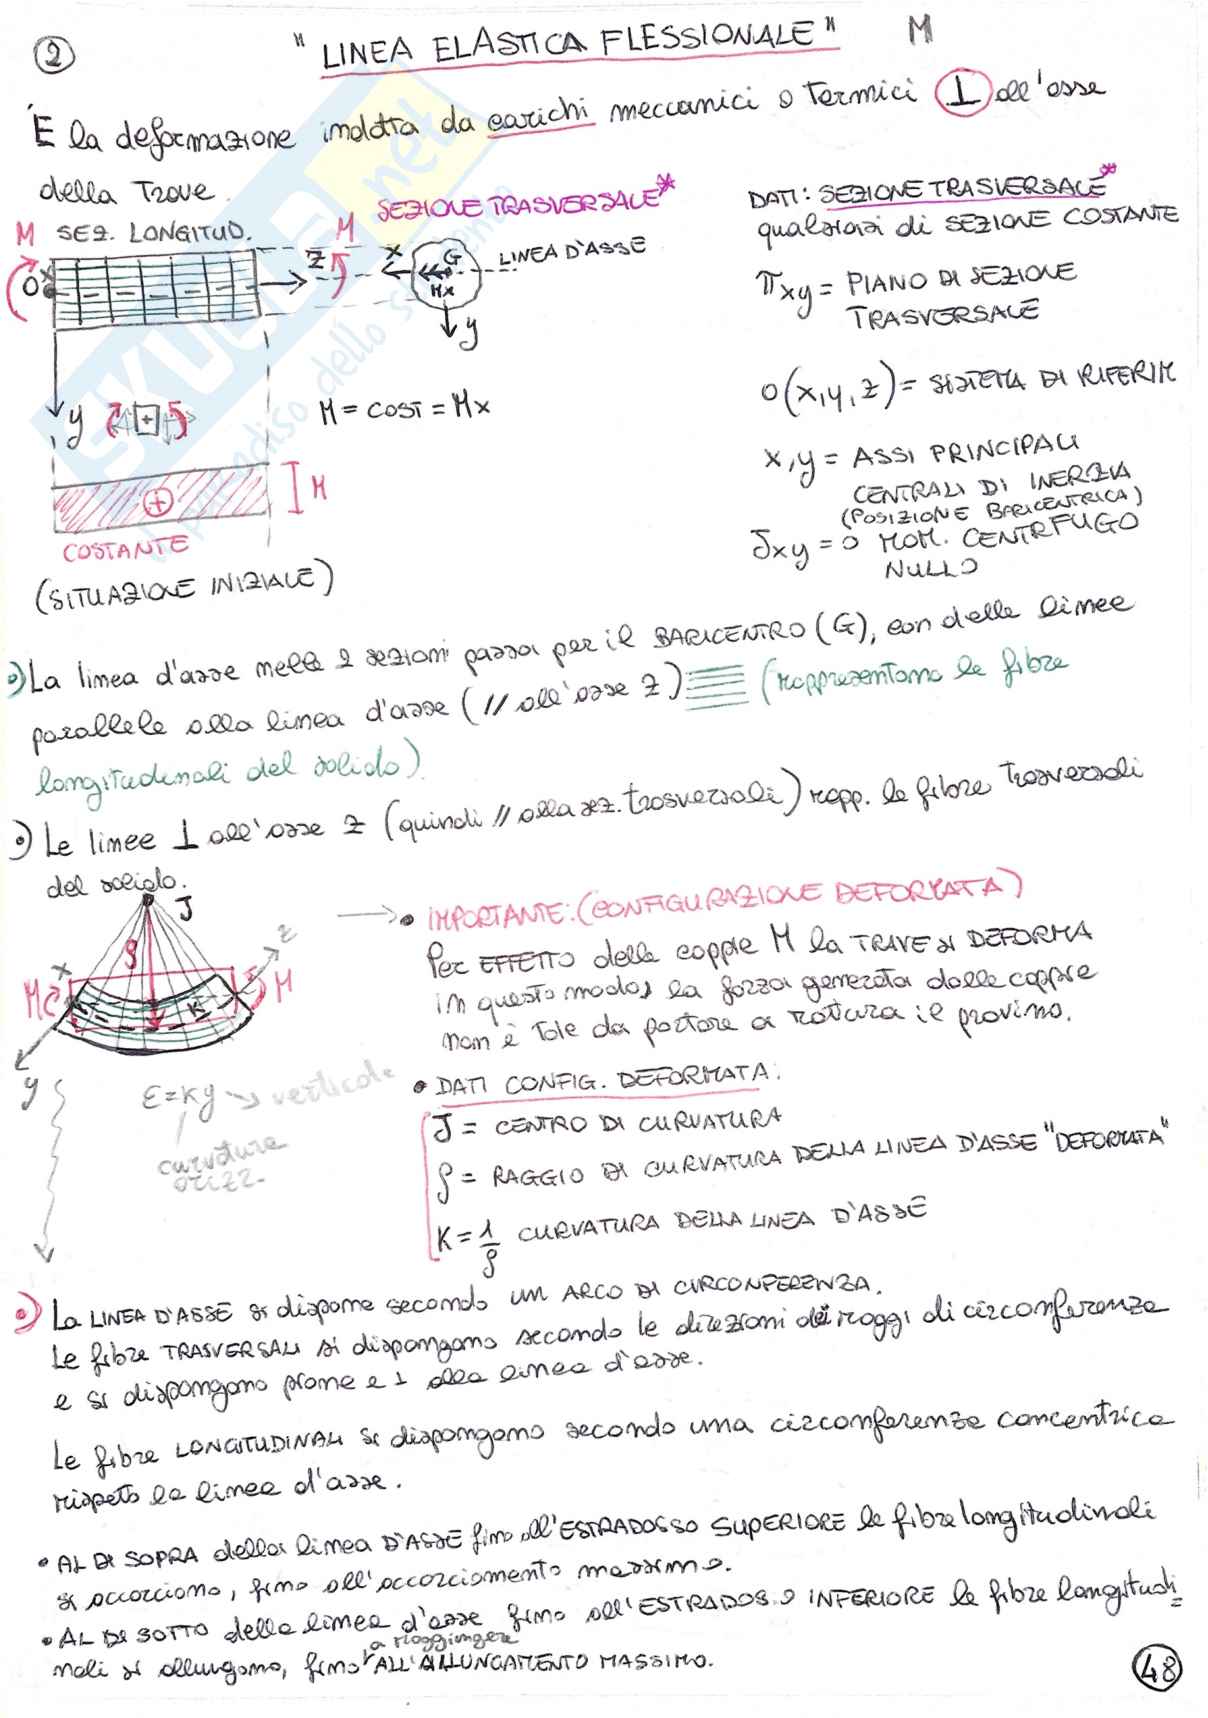 2
"LINEA ELASTICA FLESSIONALE" M
È la deformazione indotta da carichi meccanici o termici ⊥ all'asse
della Trave.
M SEZ. LONGITUD.
SEZIONE TRASVERSALE*
M
x
O
z
x
G
Mx
LINEA D'ASSE
y
y
+
M = COST = Mx
+
M
COSTANTE
(SITUAZIONE INIZIALE)
DATI: SEZIONE TRASVERSALE*
qualsiasi di SEZIONE COSTANTE
πxy = PIANO DI SEZIONE
TRASVERSALE
O(x,y,z) = SISTEMA DI RIFERIM
x,y = ASSI PRINCIPALI
CENTRALI DI INERZIA
(POSIZIONE BARICENTRICA)
Jxy = 0 MOM. CENTRFUGO
NULLO
•) La linea d'asse nelle 2 sezioni passa per il BARICENTRO (G), con delle linee
parallele alla linea d'asse (// all'asse z) (rappresentano le fibre
longitudinali del solido).
•) Le linee ⊥ all'asse z (quindi // alla sez. trasversali) rapp. le fibre trasversali
del solido.
J
ρ
x
z
M
M
K
y
ε=Ky → verticale
curvatura
orizz.
→ • IMPORTANTE: (CONFIGURAZIONE DEFORMATA)
Per EFFETTO delle coppie M la TRAVE si DEFORMA
in questo modo, la forza generata dalle coppie
non è tale da portare a rottura il provino.
• DATI CONFIG. DEFORMATA:
J = CENTRO DI CURVATURA
ρ = RAGGIO DI CURVATURA DELLA LINEA D'ASSE "DEFORMATA"
K = 1/ρ CURVATURA DELLA LINEA D'ASSE
•) La LINEA D'ASSE si dispone secondo un ARCO DI CIRCONFERENZA.
Le fibre TRASVERSALI si dispongono secondo le direzioni dei raggi di circonferenza
e si dispongono piane e ⊥ alla linea d'asse.
Le fibre LONGITUDINALI si dispongono secondo una circonferenza concentrica
rispetto la linea d'asse.
• AL DI SOPRA della linea D'ASSE fino all'ESTRADOSSO SUPERIORE le fibre longitudinali
si accorciano, fino all'accorciamento massimo.
• AL DI SOTTO della linea d'asse fino all'ESTRADOSSO INFERIORE le fibre longitudi
nali si allungano, fino a raggiungere ALL'ALLUNGAMENTO MASSIMO.
48
SKUOLA.net
il paradiso dello studento